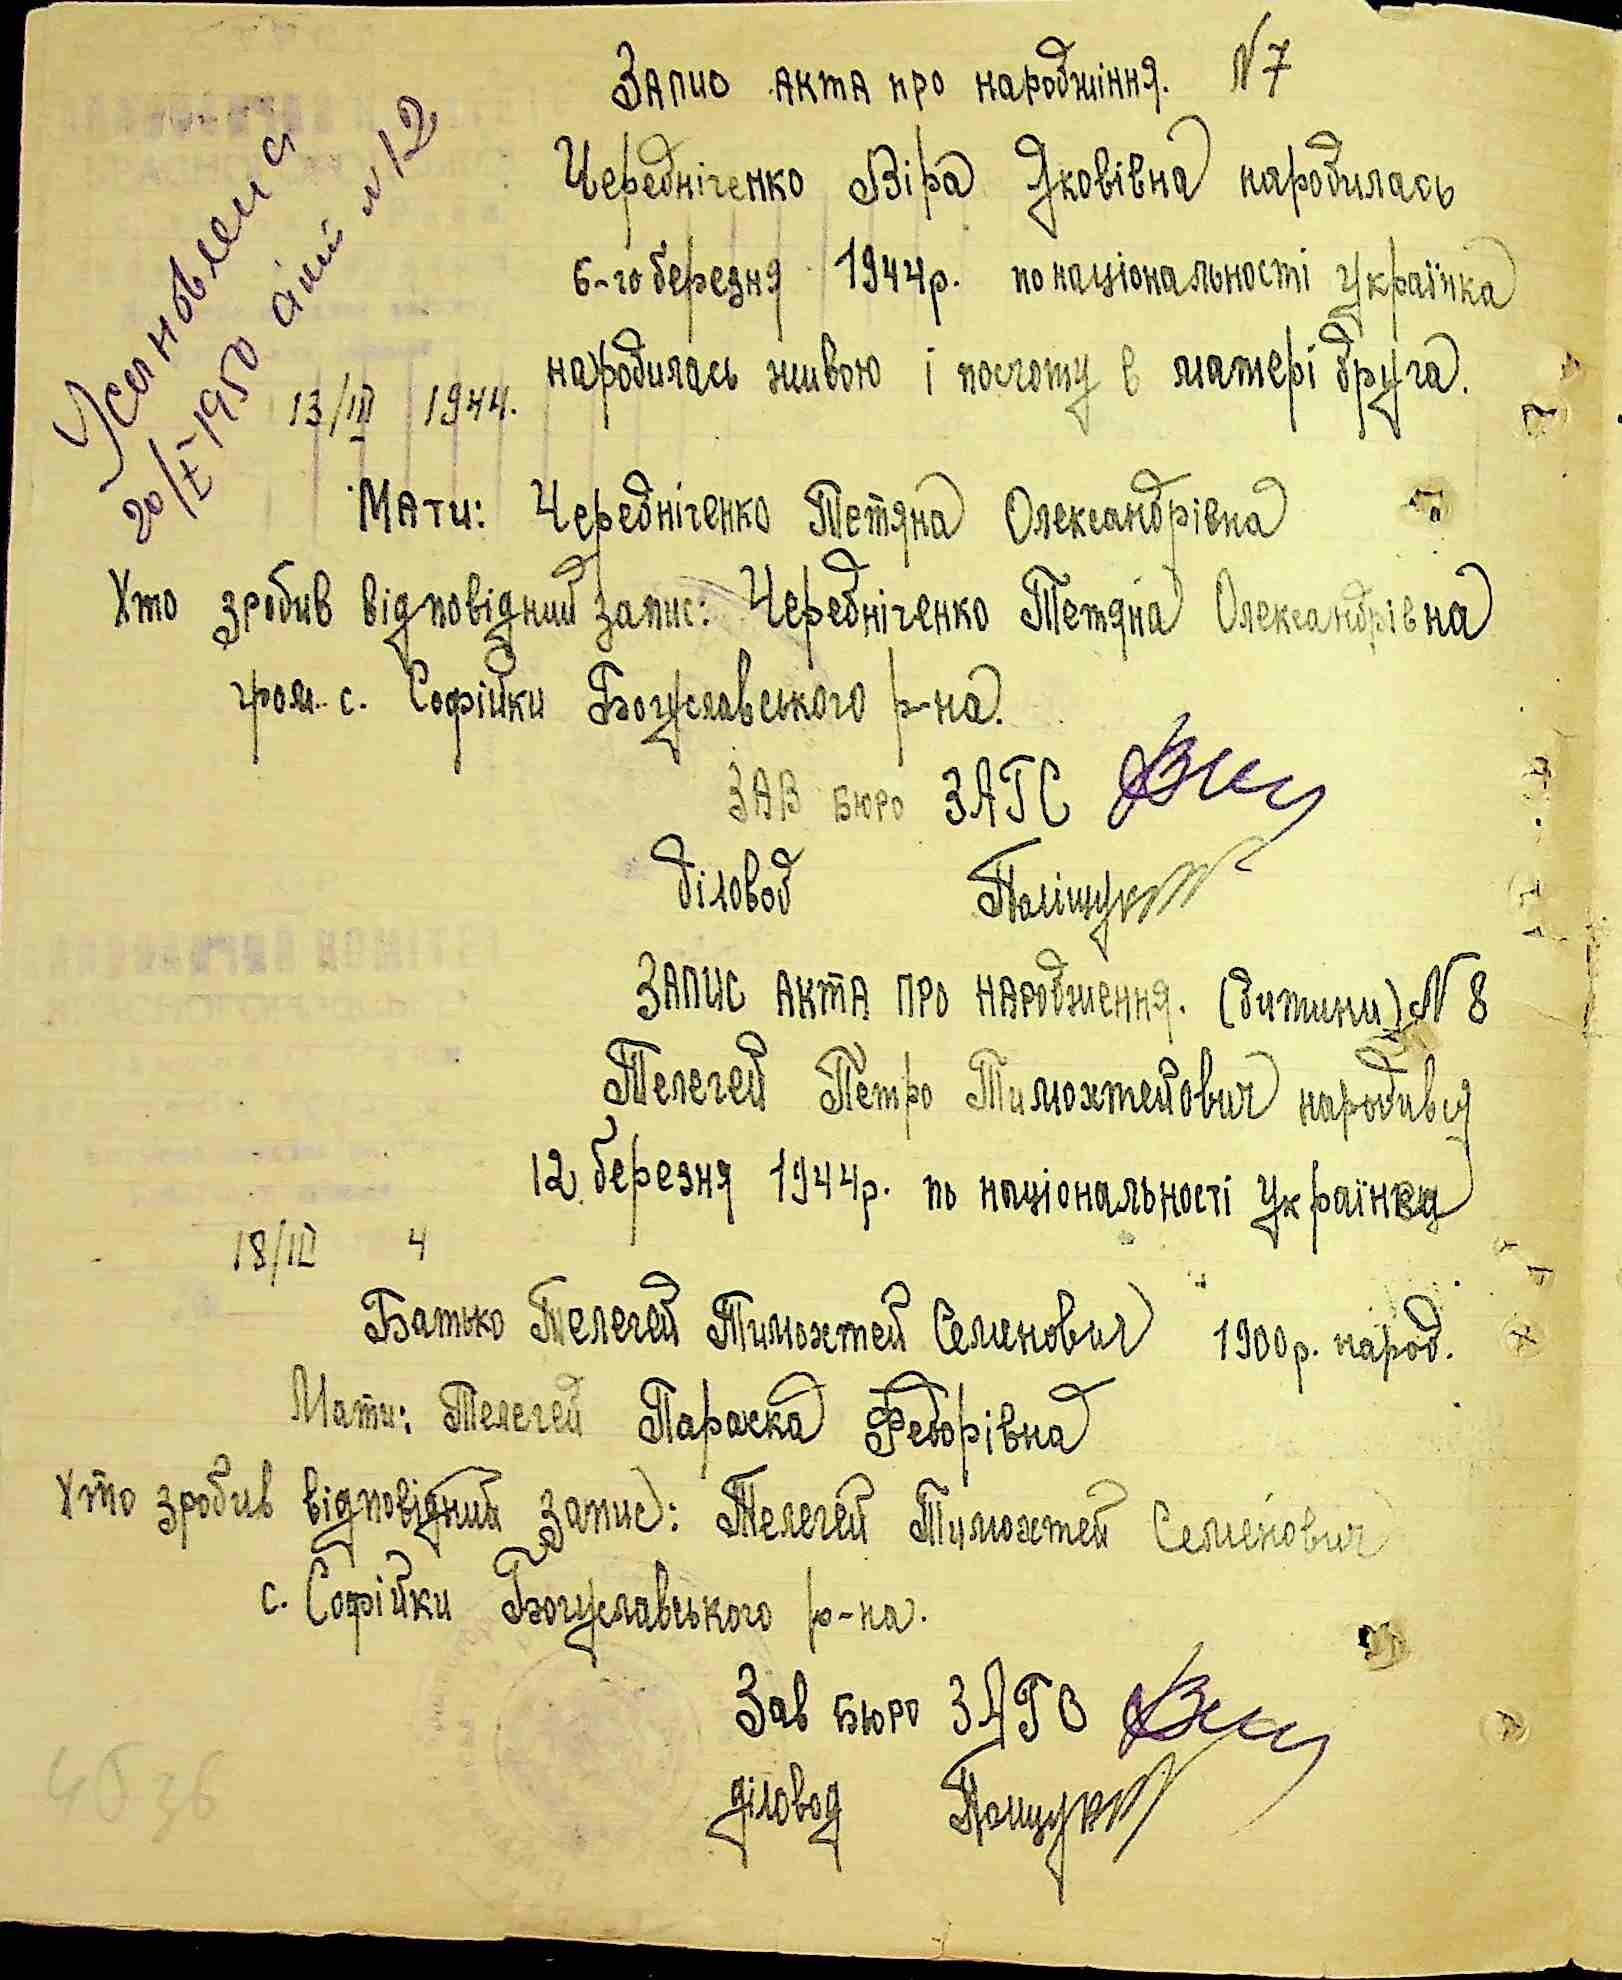 Запис акта про народжіння. N 7
Усиновлена
20/IV 1950 актий N 12
Чередніченко Віра Яковівна народилась
6-го березня 1944р. по національності українка
народилась живою і посчоту в матері друга.
13/III 1944.
Мати: Чередніченко Тетяна Олександрівна
Хто зробив відповідний запис: Чередніченко Тетяна Олександрівна
гром. с. Софійки Богуславського р-на.
ЗАВ БЮРО ЗАГС
діловод Поліщук
Запис акта про народження. (дитини) N 8
Телегей Петро Тимохтейович народився
12 березня 1944р. по національності українец
18/III 4
Батько Телегей Тимохтей Семенович 1900р. народ.
Мати: Телегей Параска Федорівна
Хто зробив відповідний запис: Телегей Тимохтей Семенович
с. Софійки Богуславського р-на.
Зав БЮРО ЗАГС
діловод Поліщук